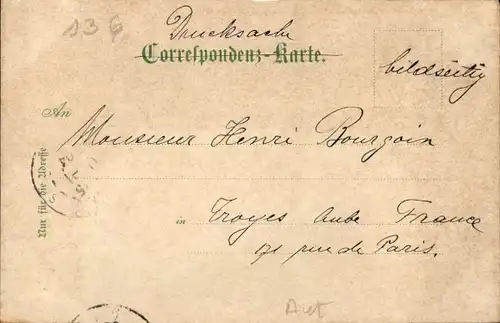 13 6
Drucksache
Correspondenz-Karte.
bildseitig
An
Monsieur Henri Bourgoin
Nur für die Adresse
in
Troyes Aube France
171 rue de Paris.